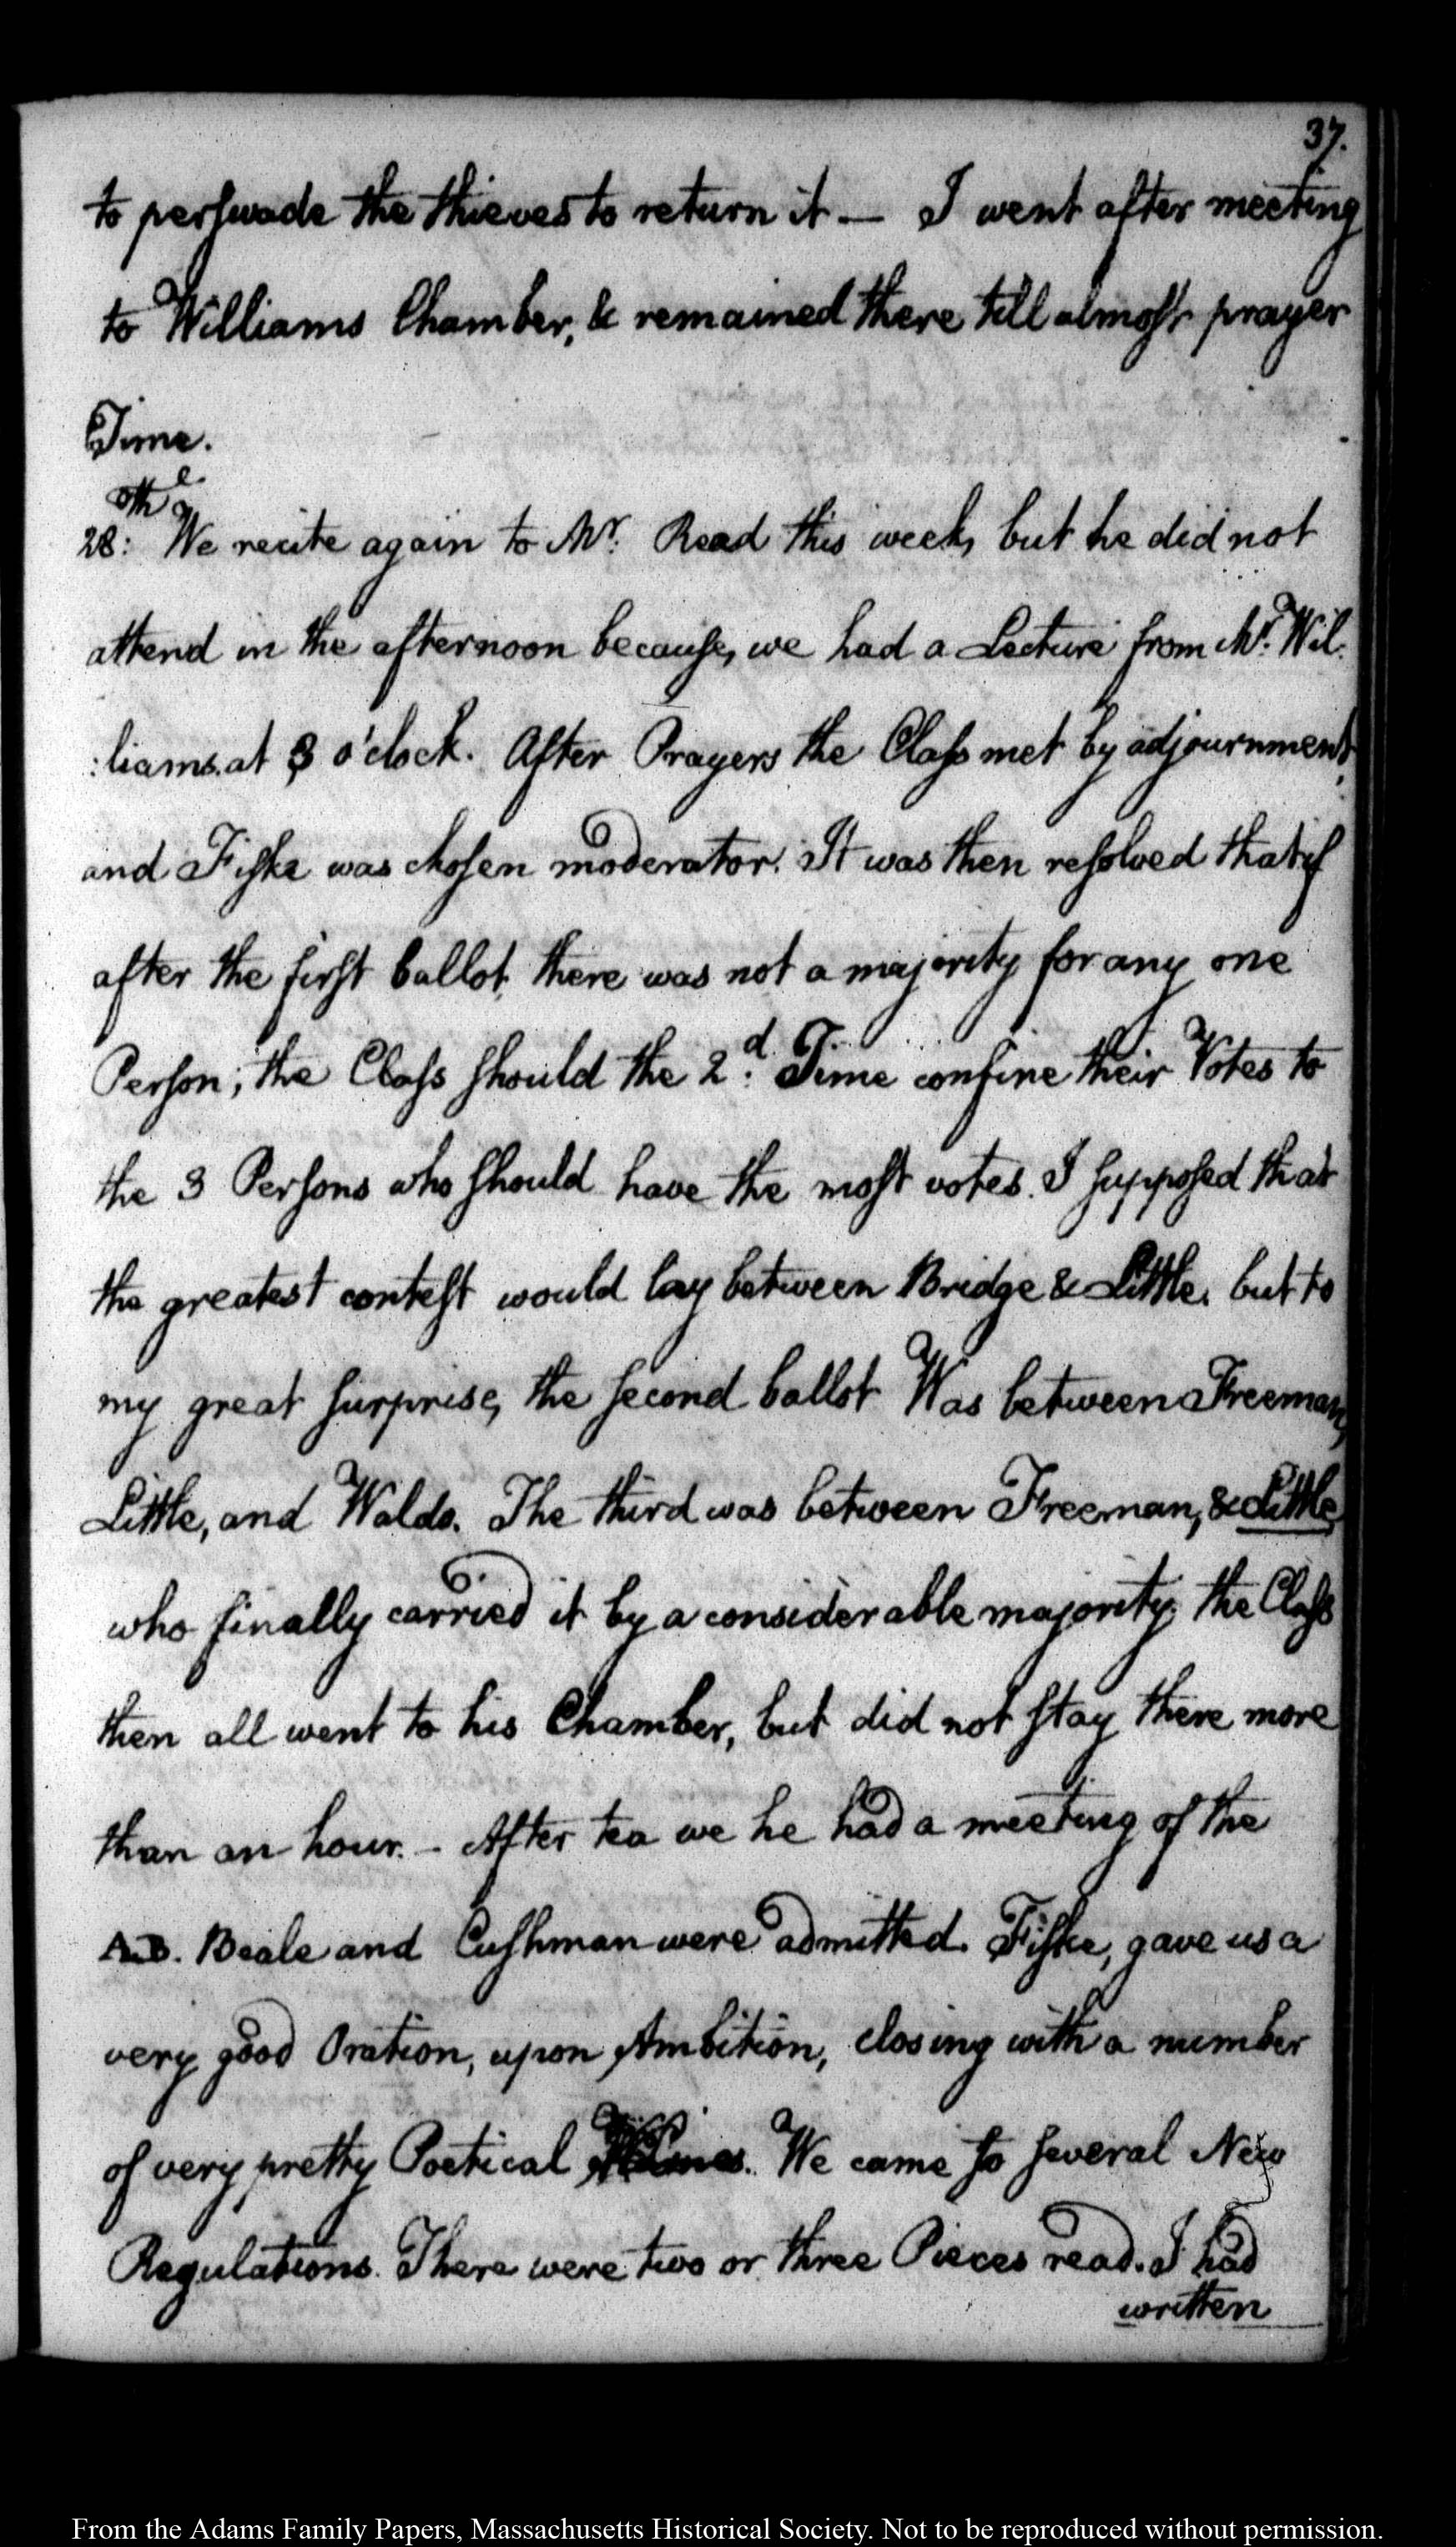 37.
to perswade the thieves to return it — I went after meeting
to Williams Chamber, & remained there till almost prayer
Time.
28:th We recite again to Mr. Read this week, but he did not
attend in the afternoon because, we had a Lecture from Mr. Wil:
:liams. at 3 o'clock. After Prayers the Class met by adjournment,
and Fiske was chosen moderator. It was then resolved that if
after the first ballot, there was not a majority for any one
Person; the Class should the 2d. Time confine their Votes to
the 3 Persons who should have the most votes. I supposed that
the greatest contest would lay between Bridge & Little. but to
my great surprise, the second ballot Was between Freeman,
Little, and Waldo. The third was between Freeman, & Little
who finally carried it by a considerable majority. the Class
then all went to his Chamber, but did not stay there more
than an hour. – After tea we he had a meeting of the
A.B. Beale and Cushman were admitted. Fiske, gave us a
very good Oration, upon Ambition, closing with a number
of very pretty Poetical Lines. We came to several New
Regulations. There were two or three Pieces read. I had
written
From the Adams Family Papers, Massachusetts Historical Society. Not to be reproduced without permission.